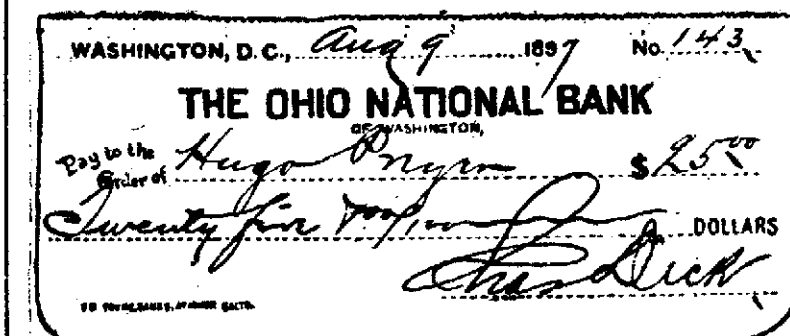 WASHINGTON, D.C., Aug 9 1897 No. 143
THE OHIO NATIONAL BANK
OF WASHINGTON,
Pay to the Order of Hugo $ 25 00
Twenty five DOLLARS
Chas Dick